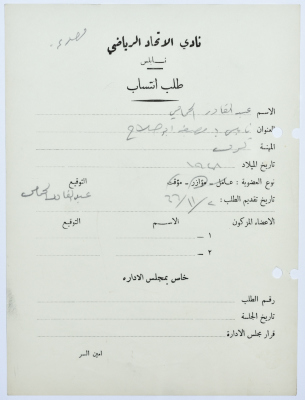 نادي الاتحاد الرياضي
نابلس
طلب انتساب
الاسم عبد القادر
العنوان نابلس
المهنة
تاريخ الميلاد ١٩٤٨
نوع العضوية : عامل - مؤازر - مؤقت التوقيع
تاريخ تقديم الطلب : ٢ / ١١ / ٦٦ عبد القادر
الاعضاء المزكون الاسم التوقيع
١ -
٢ -
خاص بمجلس الادارة
رقم الطلب
تاريخ الجلسة
قرار مجلس الادارة
امين السر